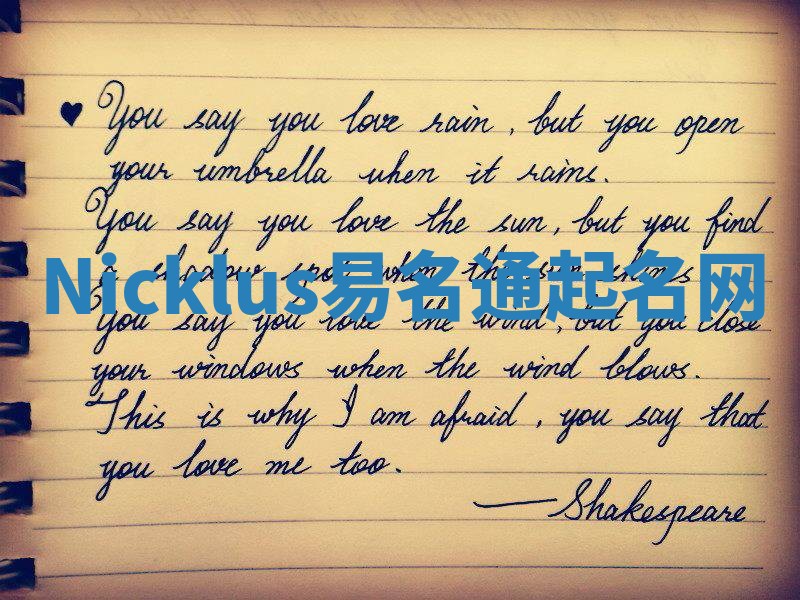 You say you love rain, but you open
your umbrella when it rains.
You say you love the sun, but you find
a shadow spot when the sun shines
Nicklus易名通起名网
You say you love the wind, but you close
your windows when the wind blows.
This is why I am afraid, you say that
you love me too.
—Shakespeare